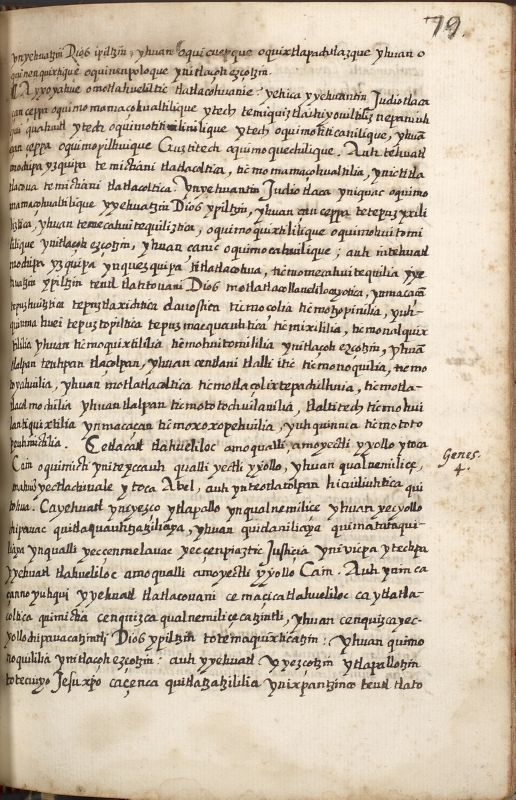 79.
ynyehuatzin Dios ypiltzin, yhuan oquicuepque oquixtlapachtlazque yhuan o
quinenquixtique oquinenpoloque ynitlaçoh ezçotzin.
Ayyoyahue omotlahueliltic tlatlacohuanie: yehica yyehuantin Judiotlaca
can ceppa oquimomamaçohualtilique ytech temiquiztlaihiyohuiltiliz nepaniuh
qui quahuitl ytech oquimotitinililique ytech oquimotiticanilique, yhuan
can ceppa oquimopilhuique Cruztitech oquimoquechilique. Auh tehuatl
mochipa yzquipa temictiani tlatlacoltica, ticmomamaçohualtilia, ynictitla
tlacoua temictiani tlatlacoltica. Ynyehuantin Judiotlaca yniquac oquimo
mamaçohualtilique yyehuatzin Dios ypiltzin, yhuan can ceppa tetepuzyxili
liztica, yhuan temecahuitequiliztica, oquimoquixtililique oquimohuitomi
lilique ynitlaçoh ezçotzin, yhuan çanic oquimocahuilique; auh intehuatl
mochipa yzquipa ynquezquipa titlatlacohua, ticmomecahuitequilia yye
huatzin ypiltzin teutl tlahtohuani Dios motlatlacollaueliloçayotica, ynmacaçan
tepuzhuitztica tepuztlaxichtica clauostica ticmocolia ticmotopinilia, yuh
quinma huei tepuztopiltica tepuzmacquauhtica ticmixililia, ticmonalquix
tililia yhuan ticmoquixtililia ticmohuitomililia ynitlaçoh ezçotzin, yhuan
tlalpan teuhpan tlaçolpan, yhuan centlani tlalli itic ticmonoquilia, ticmo
toyahuilia, yhuan motlatlacoltica ticmotlaçolixtepachilhuia, ticmotla-
tlacalmochilia yhuan tlalpan ticmototochuilanilia, tlaltitech ticmohui
lantiquixtilia ynmacaçan ticmoxoxopehuilia, yuhquinma ticmototo
peuhmictilia. Cetlacatl tlahueliloc amoqualli, amoyectli yyollo ytoca
Cain oquimicti yniteyccauh qualli yectli yyollo, yhuan qualnemiliçe,
Genes. 4.
mahuiz yectlachiuale y toca Abel, auh ynteotlatolpan hicuiliuhtica qui
tohua. Cayehuatl ynieyezço ytlapallo ynqualnemiliçe yhuan yecyollo
chipauac quitlaquauhtzatziliaya, yhuan quitlaniliaya quimatataqui-
liaya ynqualli yeccenmelauac yeccenpiaztic Justicia ynivicpa ytechpa
yyehuatl tlahueliloc amoqualli amoyectli yyollo Cain. Auh ynin ca
çanno yuhqui yyehuatl tlatlacouani cemaçicatlahueliloc ca ytlatla-
coltica quimictia cenquizca qualnemiliçecatzintli, yhuan cenquizcayec-
yollochipauacatzintli Dios ypiltzin totemaquixticatzin: yhuan quimo
noquililia ynitlaçoh ezçotzin: auh yyehuatl yyezçotzin ytlapallotzin
totecuiyo Jesuxpo caçenca quitlatzatzililia ynixpantzinco teutl tlato